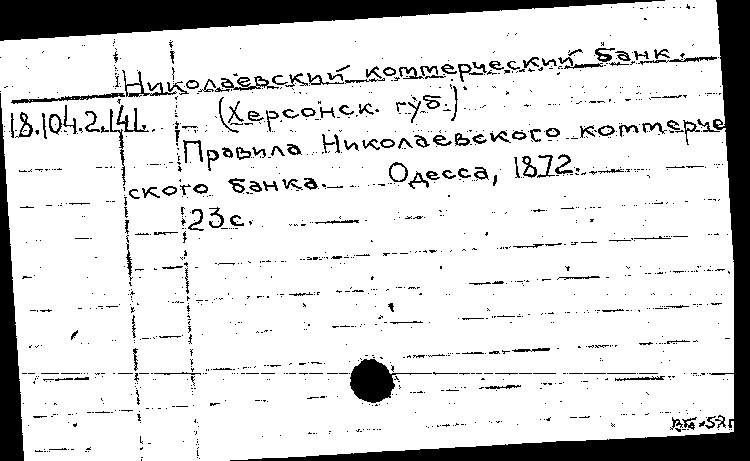 Николаевский коммерческий банк.
18.104.2.141. (Херсонск. губ.)
Правила Николаевского коммерче
ского банка. Одесса, 1872.
23 с.